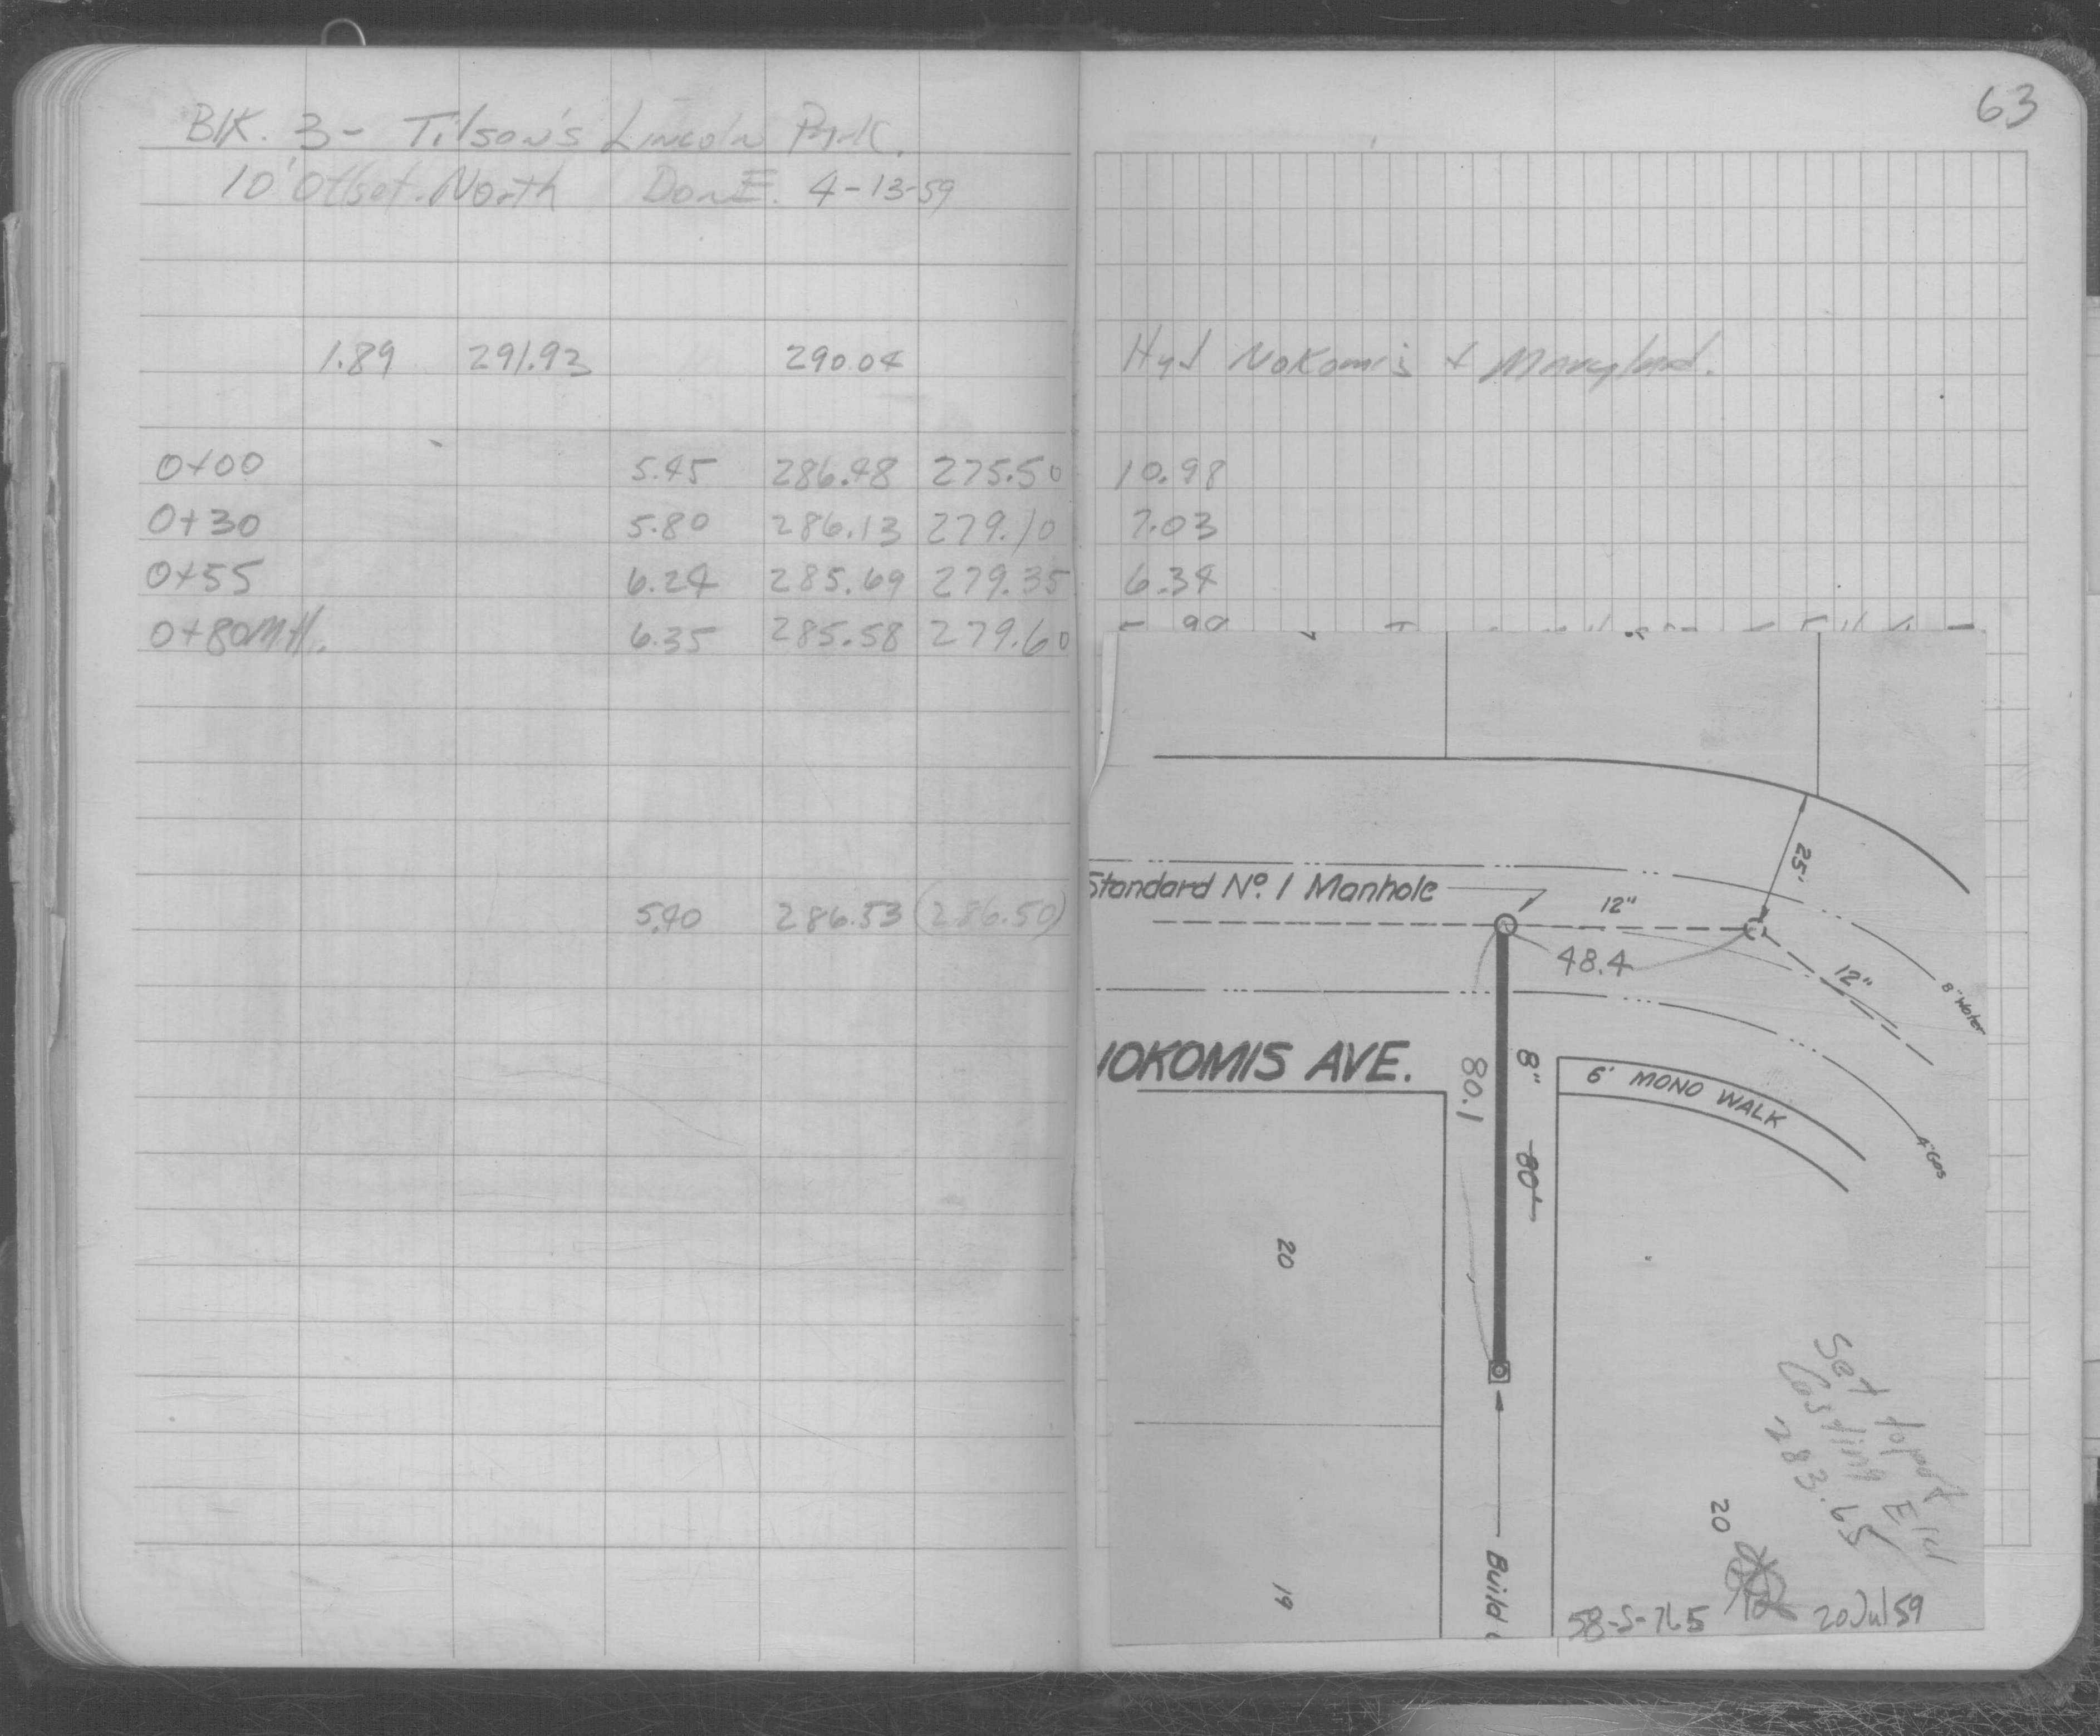 63
BlK. 3 - Tilson's Lincoln Park.
10' Offset North DonE. 4-13-59
1.89 291.93 290.04 Hyd Nokomis & Maryland.
0+00 5.45 286.48 275.50 10.98
0+30 5.80 286.13 279.10 7.03
0+55 6.24 285.69 279.35 6.34
0+80 M.H. 6.35 285.58 279.60
5.40 286.53 (286.50)
25'
Standard No. 1 Manhole
12"
48.4
12"
8" Water
OKOMIS AVE.
80.1
8"
80'
6' MONO WALK
4" Gas
20
Set top of
Casting Eld
283.65
20
19
Build
58-S-765 20 Jul 59